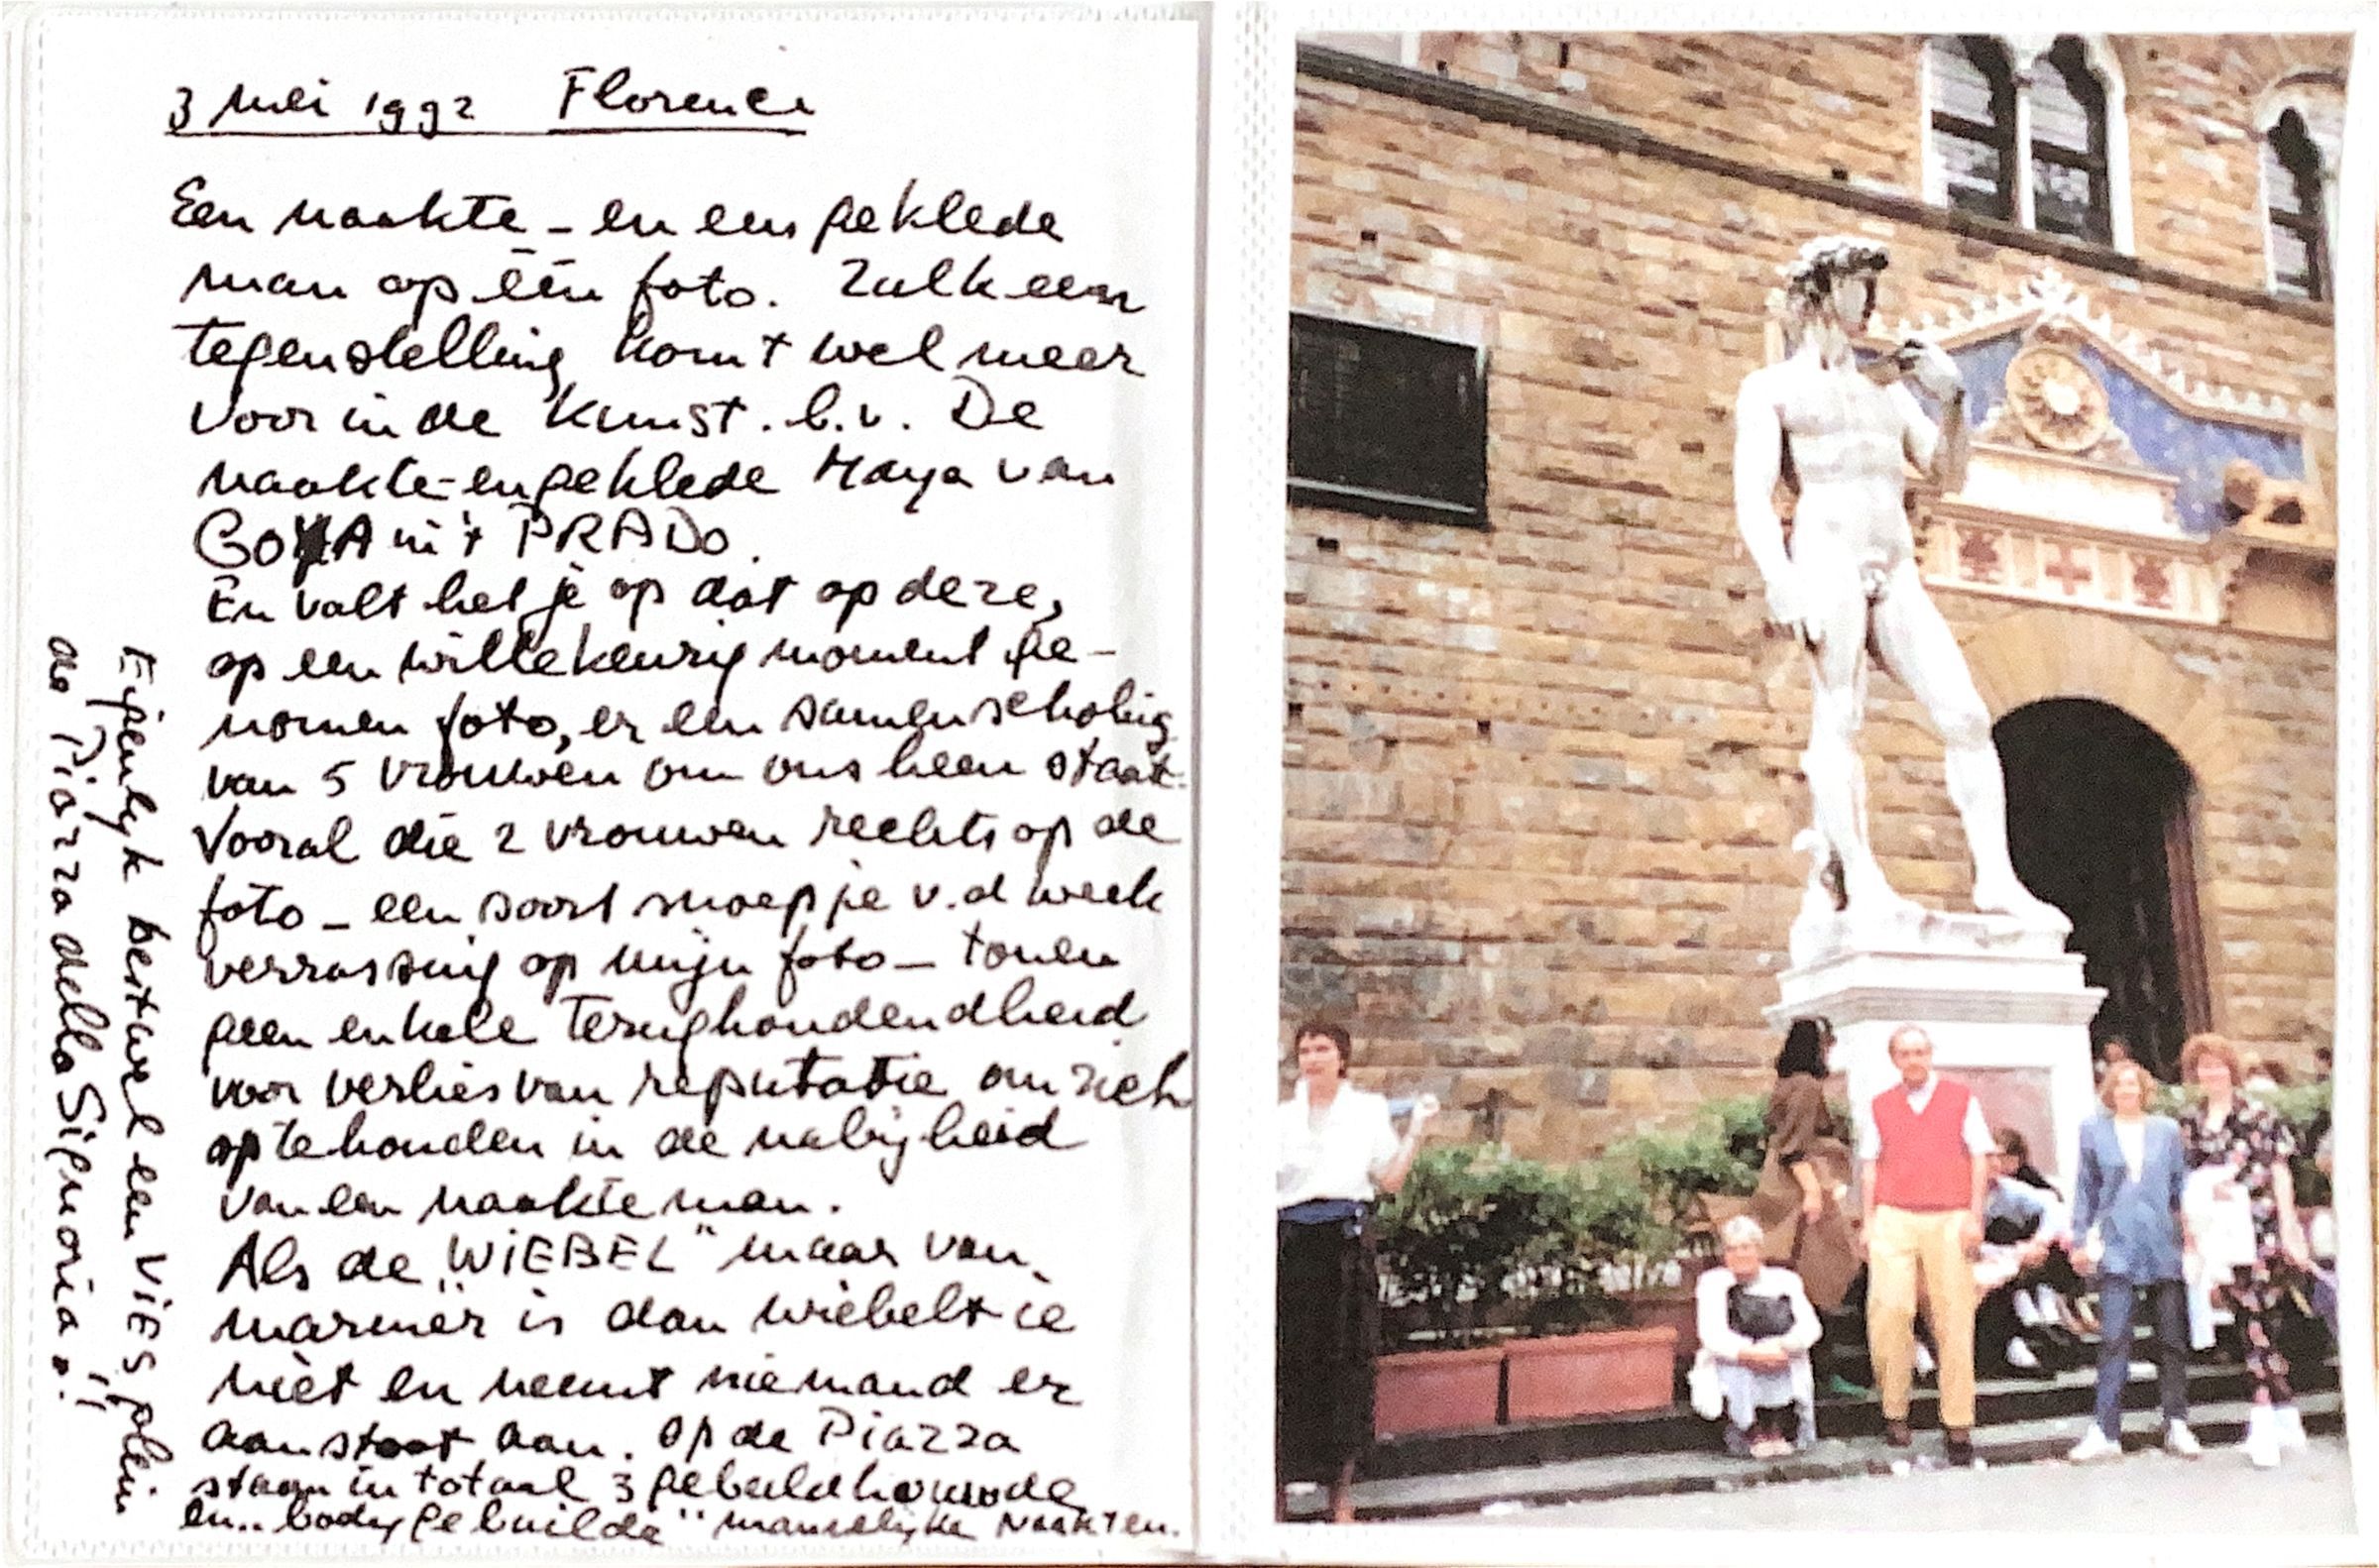 3 Mei 1992 Florence
Een naakte – en een geklede
man op één foto. Zulk een
tegenstelling komt wel meer
voor in de Kunst. b.v. De
naakte-en geklede Maya van
GOYA in 't PRADO.
En valt het je op dat op deze,
op een willekeurig moment ge-
nomen foto, er een samenscholing
van 5 vrouwen om ons heen staat.
Vooral die 2 vrouwen rechts op de
foto – een soort snoepje v.d week
verrassing op mijn foto – tonen
geen enkele terughoudendheid
voor verlies van reputatie om zich
op te houden in de nabijheid
van een naakte man.
Als de „WIEBEL" maar van
marmer is dan wiebelt ie
niet en neemt niemand er
aanstoot aan. Op de Piazza
staan in totaal 3 gebeeldhouwde
en „body gebuilde" mannelijke Naakten.
Eigenlijk best wel een VIES plein
de Piazza della Signoria !!